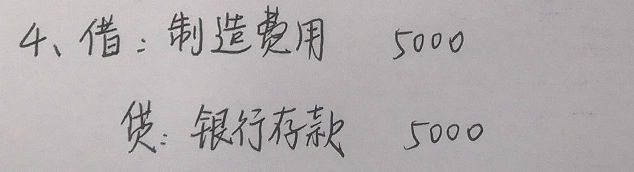 4、借：制造费用 5000
贷：银行存款 5000